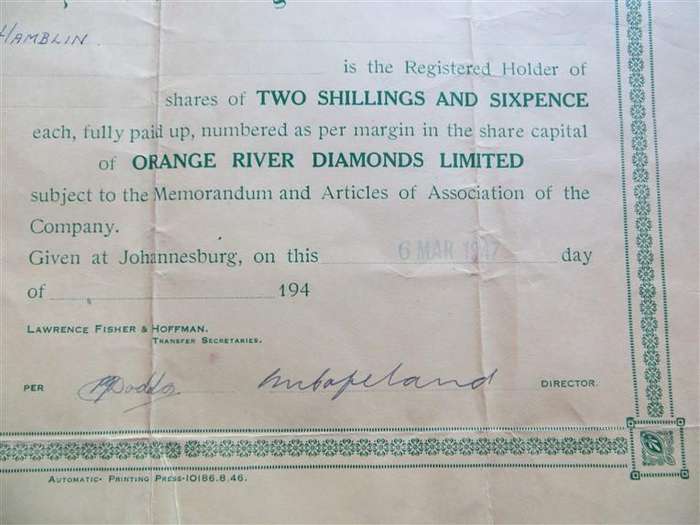 HAMBLIN
is the Registered Holder of
shares of TWO SHILLINGS AND SIXPENCE
each, fully paid up, numbered as per margin in the share capital
of ORANGE RIVER DIAMONDS LIMITED
subject to the Memorandum and Articles of Association of the
Company.
Given at Johannesburg, on this 6 MAR 1947 day
of 194
LAWRENCE FISHER & HOFFMAN.
TRANSFER SECRETARIES.
PER DIRECTOR.
AUTOMATIC PRINTING PRESS-10186.8.46.